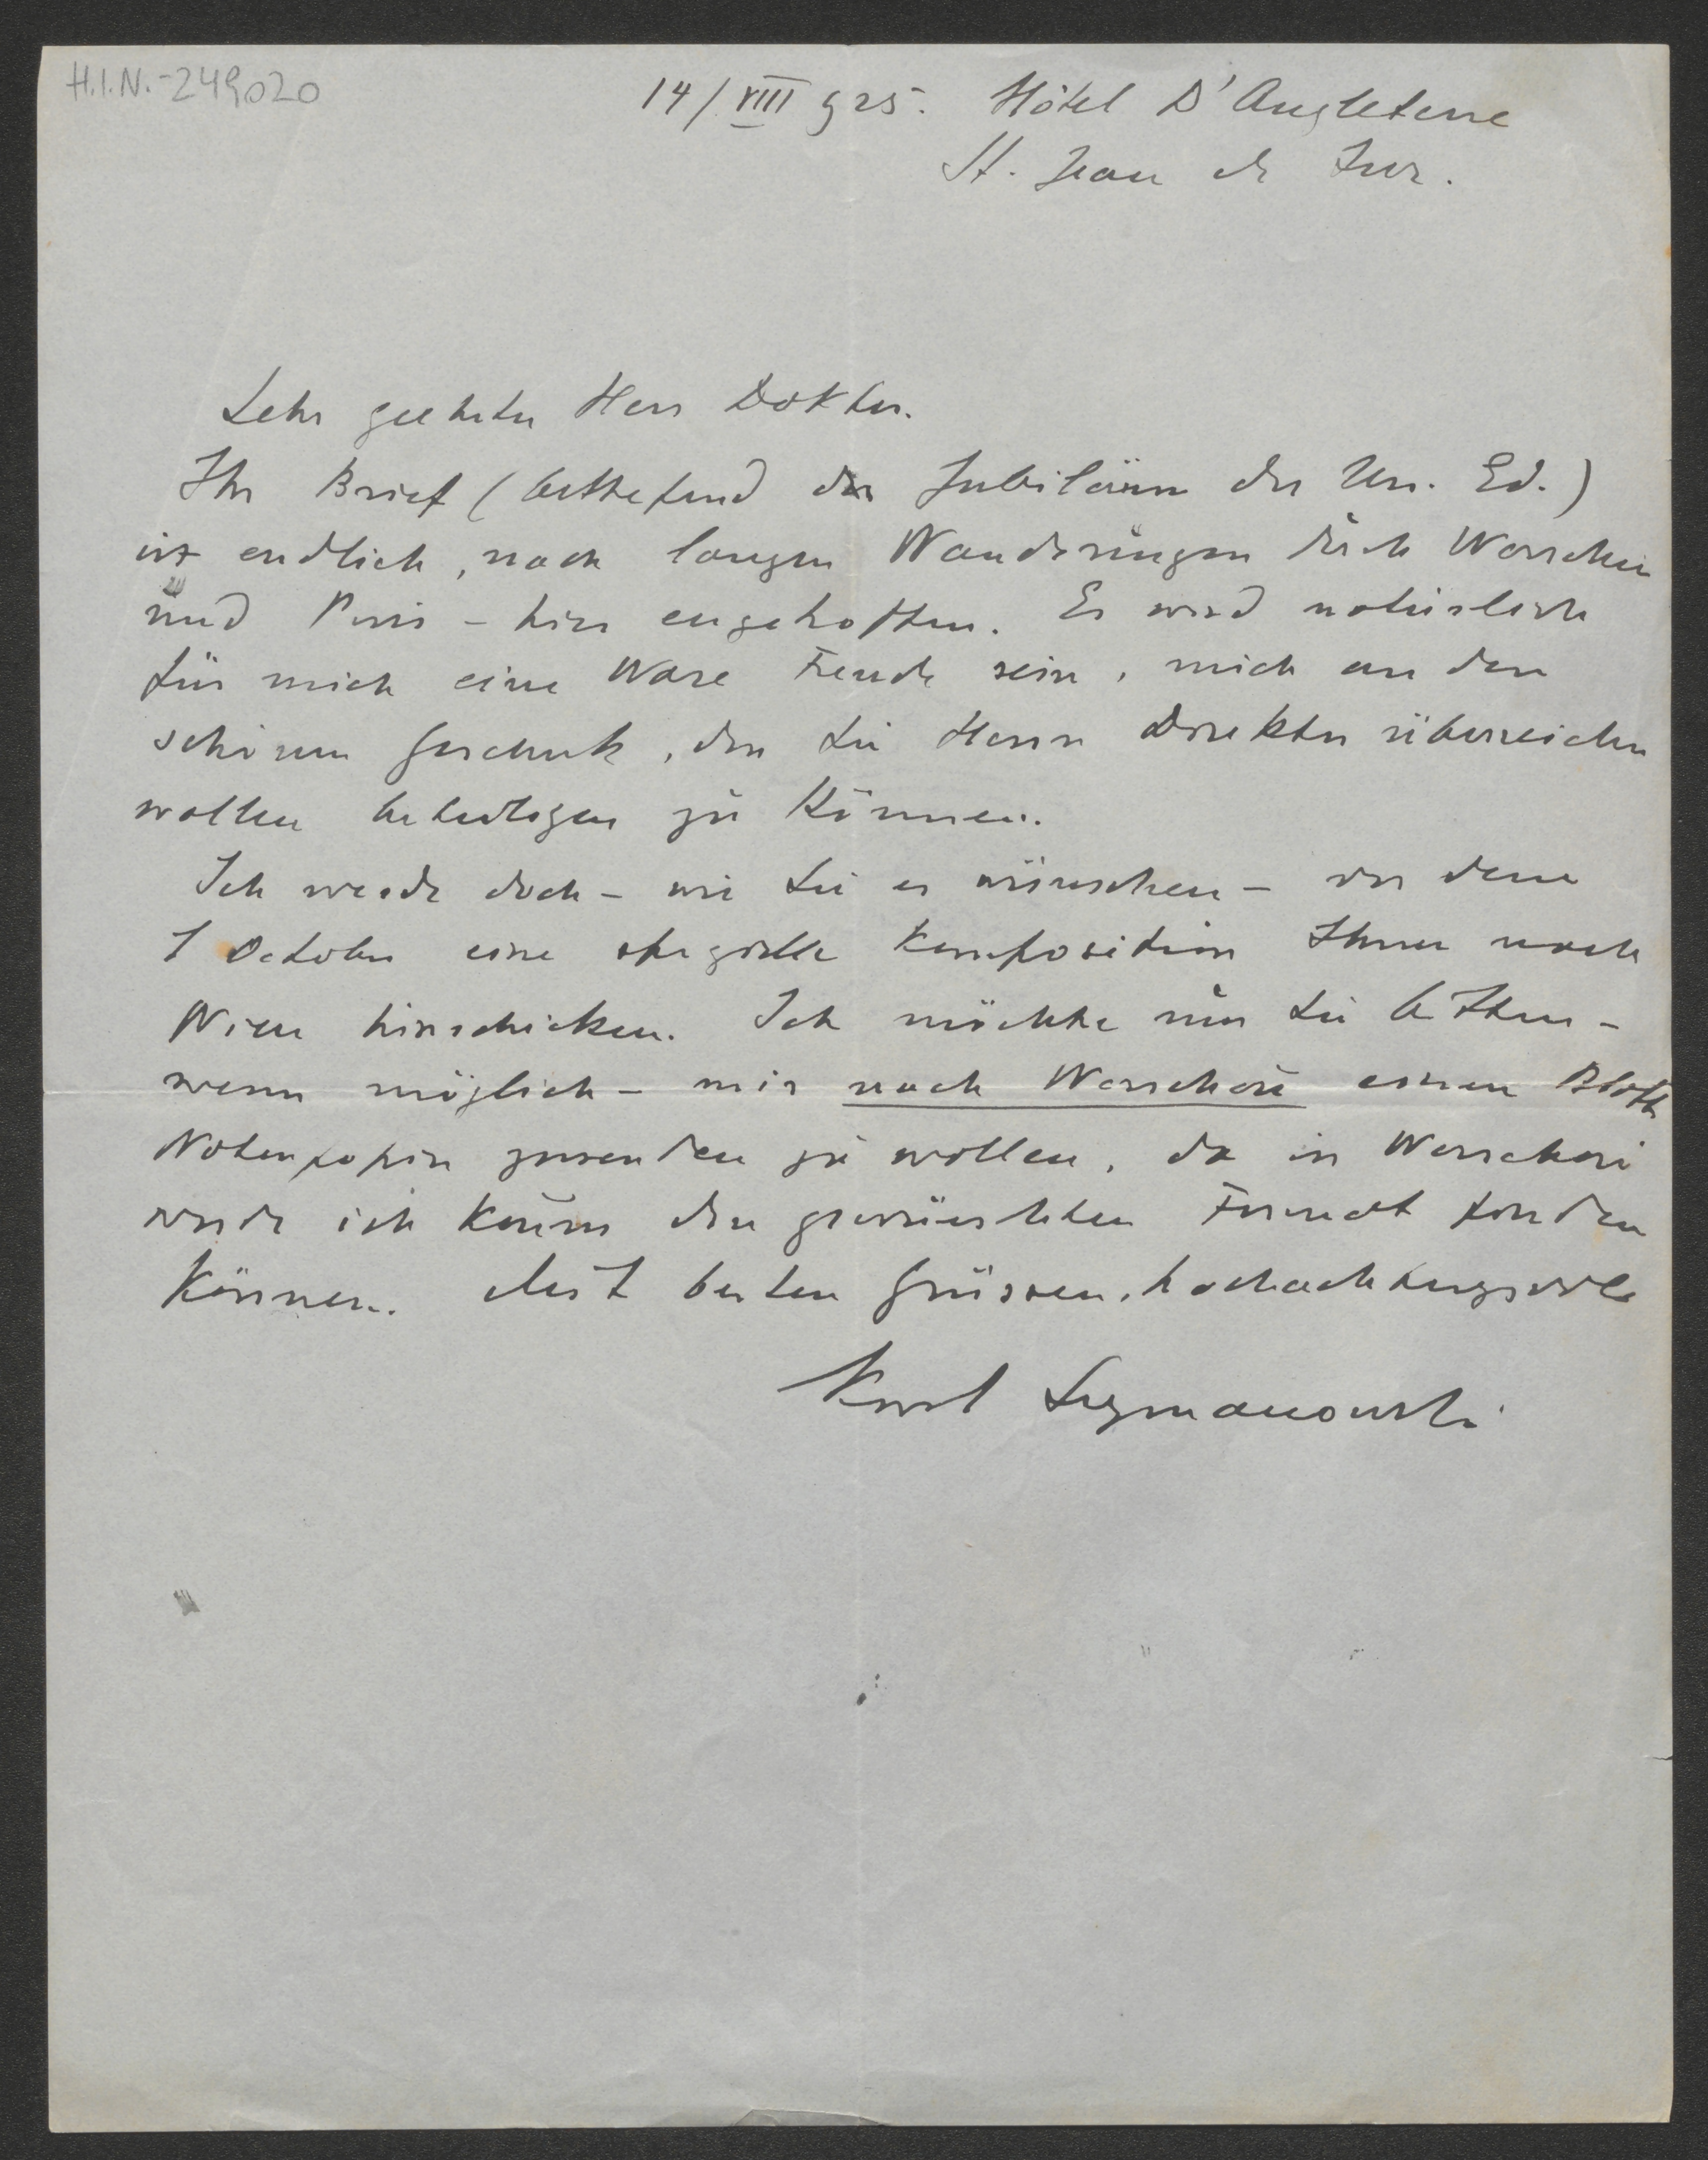 H.I.N.-249020
14/VIII 925. Hôtel D'Angleterre
St. Jean de Luz.
Sehr geehrter Herr Doktor.
Ihr Brief (betreffend das Jubiläum der Un. Ed.)
ist endlich, nach langen Wanderungen durch Warschau
und Paris – hier eingetroffen. Es wird natürlich
für mich eine Ware Freude sein, mich an den
schönen Geschenk, den Sie Herrn Direktor überreichen
wollen beteiligen zu können.
Ich werde doch – wie Sie es wünschen – vor dem
1 October eine spezielle Komposition Ihnen nach
Wien hinschicken. Ich möchte nun Sie bitten –
wenn möglich – mir nach Warschau einen Blatt
Notenpapier zusenden zu wollen, da in Warschau
werde ich kaum den gewünschten Format finden
können. Mit besten Grüssen, hochachtungsvoll
Karol Szymanowski